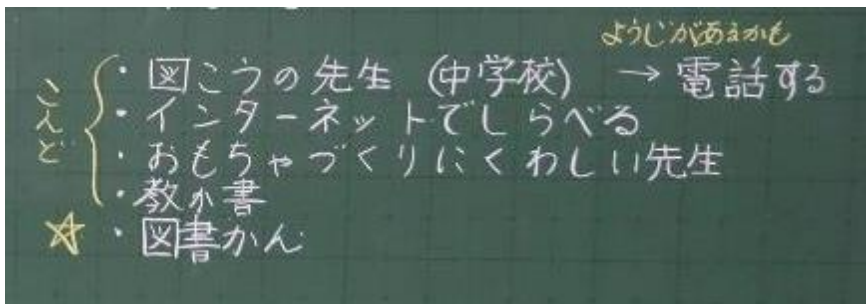 ようじがあるかも
・図こうの先生 (中学校) → 電話する
・インターネットでしらべる
・おもちゃづくりにくわしい先生
・教か書
☆・図書かん
こんど